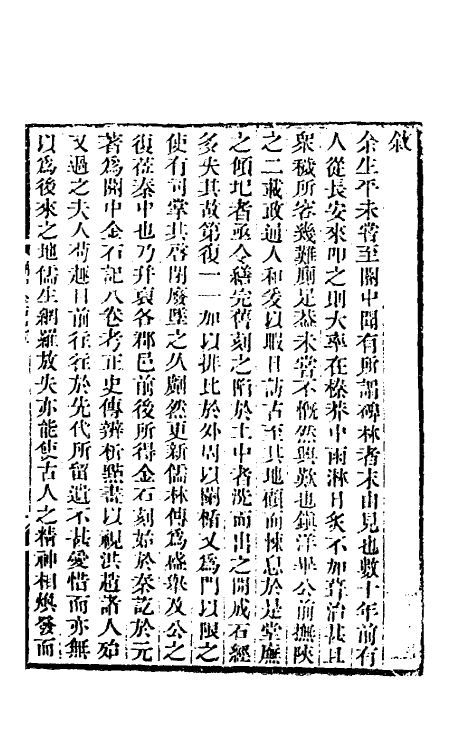 敘
余生平未嘗至關中聞有所謂碑林者末由見也數十年前有
人從長安來叩之則大率在榛莽中雨淋日炙不加葺治甚且
衆穢所容幾難廁足葢未嘗不慨然興歎也鎮洋畢公前撫陝
之二載政通人和爰以暇日訪古至其地顧而悚息於是堂廡
之傾圮者亟令繕完舊刻之陷於土中者洗而出之開成石經
多失其故第復一一加以排比於外周以闌楯又爲門以限之
使有司掌其啓閉廢墜之久廟然更新儒林傳爲盛舉及公之
復莅秦中也乃幷裒各郡邑前後所得金石刻始於秦訖於元
著爲關中金石記八卷考正史傳辨析點畫以視洪趙諸人殆
又過之夫人苟趣目前往往於先代所留遺不甚愛惜而亦無
以爲後來之地儒生網羅放失亦能使古人之精神相煥發而